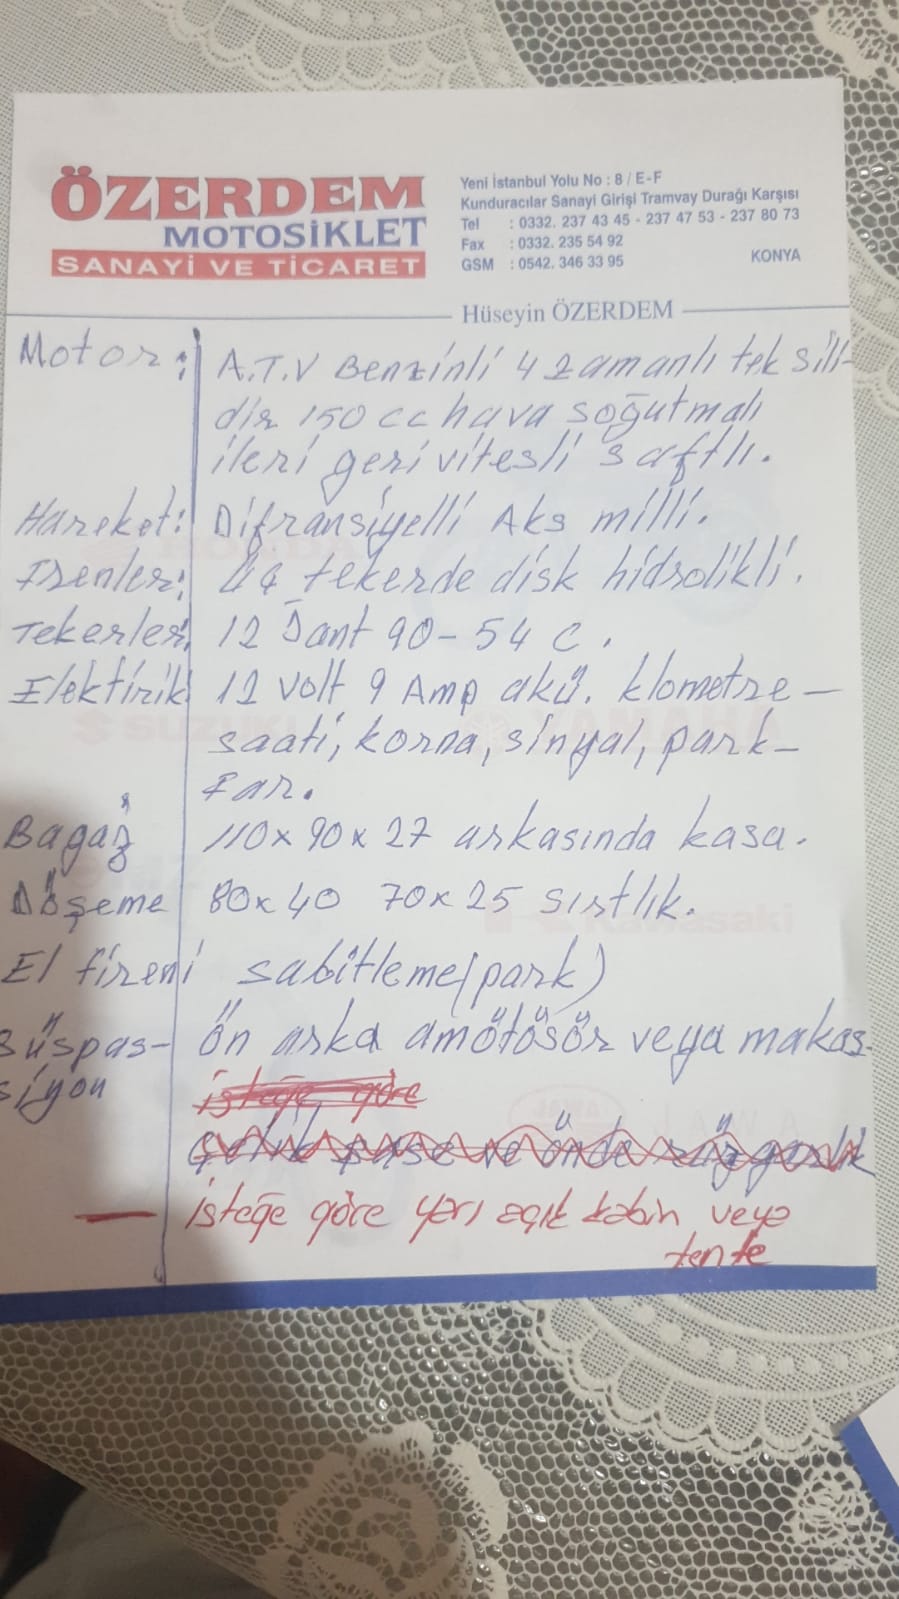 ÖZERDEM
MOTOSİKLET
SANAYİ VE TİCARET
Yeni İstanbul Yolu No : 8 / E-F
Kunduracılar Sanayi Girişi Tramvay Durağı Karşısı
Tel : 0332. 237 43 45 - 237 47 53 - 237 80 73
Fax : 0332. 235 54 92
GSM : 0542. 346 33 95 KONYA
Hüseyin ÖZERDEM
Motor: A.T.V Benzinli 4 zamanlı tek silin-
dir 150 cc hava soğutmalı
ileri geri vitesli şaftlı.
Hareket: Difransiyelli Aks milli.
Frenler: üç tekerde disk hidrolikli.
Tekerler: 12 Jant 90-54 C.
Elektirik: 12 volt 9 Amp akü. klometre-
saati, korna, sinyal, park-
Far.
Bagaj 110x90x27 arkasında kasa.
Döşeme 80x40 70x25 sırtlık.
El fireni sabitleme (park)
Süspas- ön arka amötösör veya makas.
siyon
isteğe göre
Çelik şase ve önde rüzgarlık
— isteğe göre yarı açık kabin veya
tente
SUZUKI
YAMAHA
Kawasaki